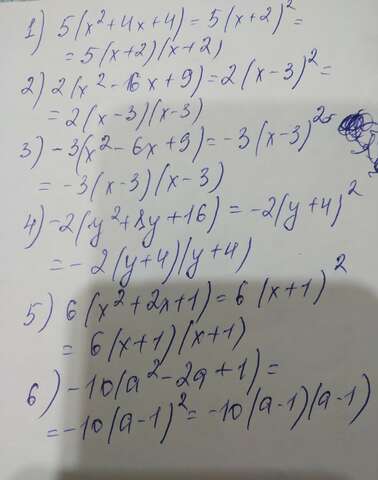 1) 5(x²+4x+4)=5(x+2)²=
=5(x+2)(x+2)
2) 2(x²-16x+9)=2(x-3)²=
=2(x-3)(x-3)
3) -3(x²-6x+9)=-3(x-3)²=
=-3(x-3)(x-3)
4) -2(y²+8y+16)=-2(y+4)²
=-2(y+4)(y+4)
5) 6(x²+2x+1)=6(x+1)²
=6(x+1)(x+1)
6) -10(a²-2a+1)=
=-10(a-1)²=-10(a-1)(a-1)